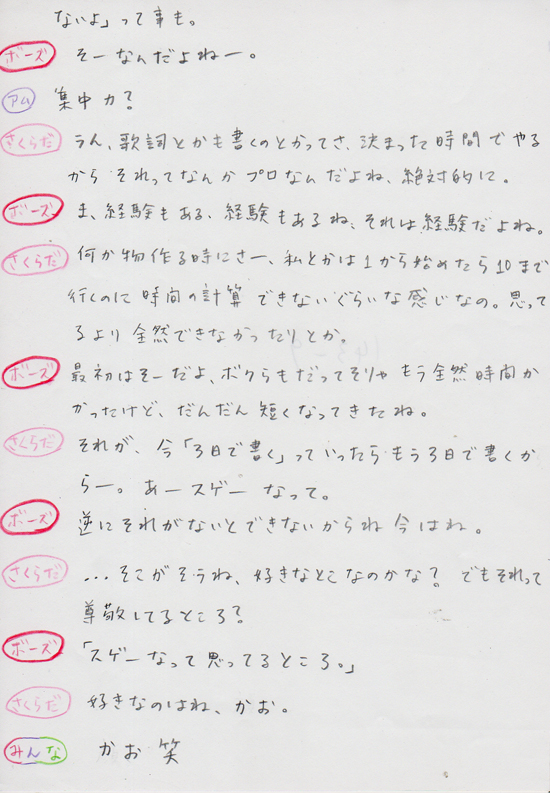 ないよ」って事も。
ボーズ そーなんだよねー。
アム 集中力?
さくらだ うん、歌詞とかも書くのとかってさ、決まった時間でやる
から それってなんか プロなんだよね、絶対的に。
ボーズ ま、経験もある、経験もあるね、それは経験だよね。
さくらだ 何か物作る時にさー、私とかは1から始めたら10まで
行くのに 時間の計算 できないぐらいな感じなの。思って
るより 全然できなかったりとか。
ボーズ 最初はそーだよ、ボクらもだってそりゃ もう全然時間か
かったけど、だんだん 短くなってきたね。
さくらだ それが、今「3日で書く」っていったらもう3日で書くか
らー。あースゲーなって。
ボーズ 逆にそれがないとできないからね 今はね。
さくらだ ...そこがそうね、好きなとこなのかな? でもそれって
尊敬してるところ?
ボーズ 「スゲーなって思ってるところ。」
さくらだ 好きなのはね、かお。
みんな かお 笑